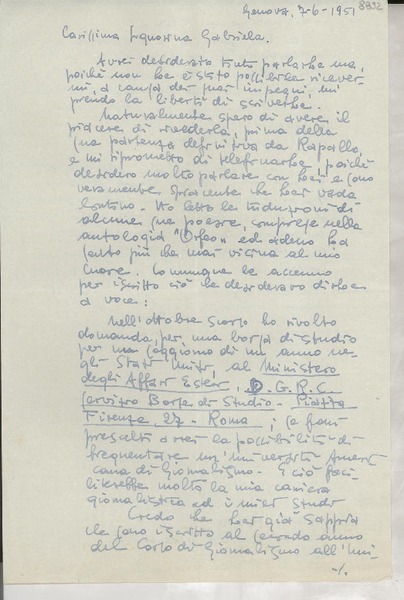 Genova, 7-6-1951 8892
Carissima Signorina Gabriela.
Avrei desiderato tanto parlarle ma,
poiché non ha Ella potuto ricever-
mi, a causa dei suoi impegni, mi
prendo la libertà di scriverle.
Naturalmente spero di avere il
piacere di rivederla, prima della
Sua partenza definitiva da Rapallo,
e mi riprometto di telefonarle poiché
desidero molto parlare con Lei e sono
veramente spiacente che Lei vada
lontano. Ho letto le traduzioni di
alcune Sue poesie, comprese nella
antologia "Orfeo" ed adesso La
sento più che mai vicina al mio
cuore. Comunque Le accenno
per iscritto ciò che desideravo dirLe
a voce:
Nell'ottobre scorso ho rivolto
domanda, per una borsa di studio
per un soggiorno di un anno ne-
gli Stati Uniti, al Ministero
degli Affari Esteri, D.G.R.C.
Servizio Borse di Studio - Piazza
Firenze, 27 - Roma; se fossi
prescelta avrei la possibilità di
frequentare un'università Ameri-
cana di Giornalismo. E ciò faci-
literebbe molto la mia carriera
giornalistica ed i miei studi
Credo che Lei già sappia
che sono iscritta al secondo anno
del Corso di Giornalismo all'Uni-
./.